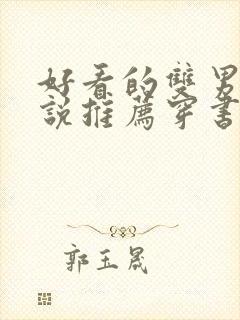 好看的雙男
說推薦穿書
郭玉晟